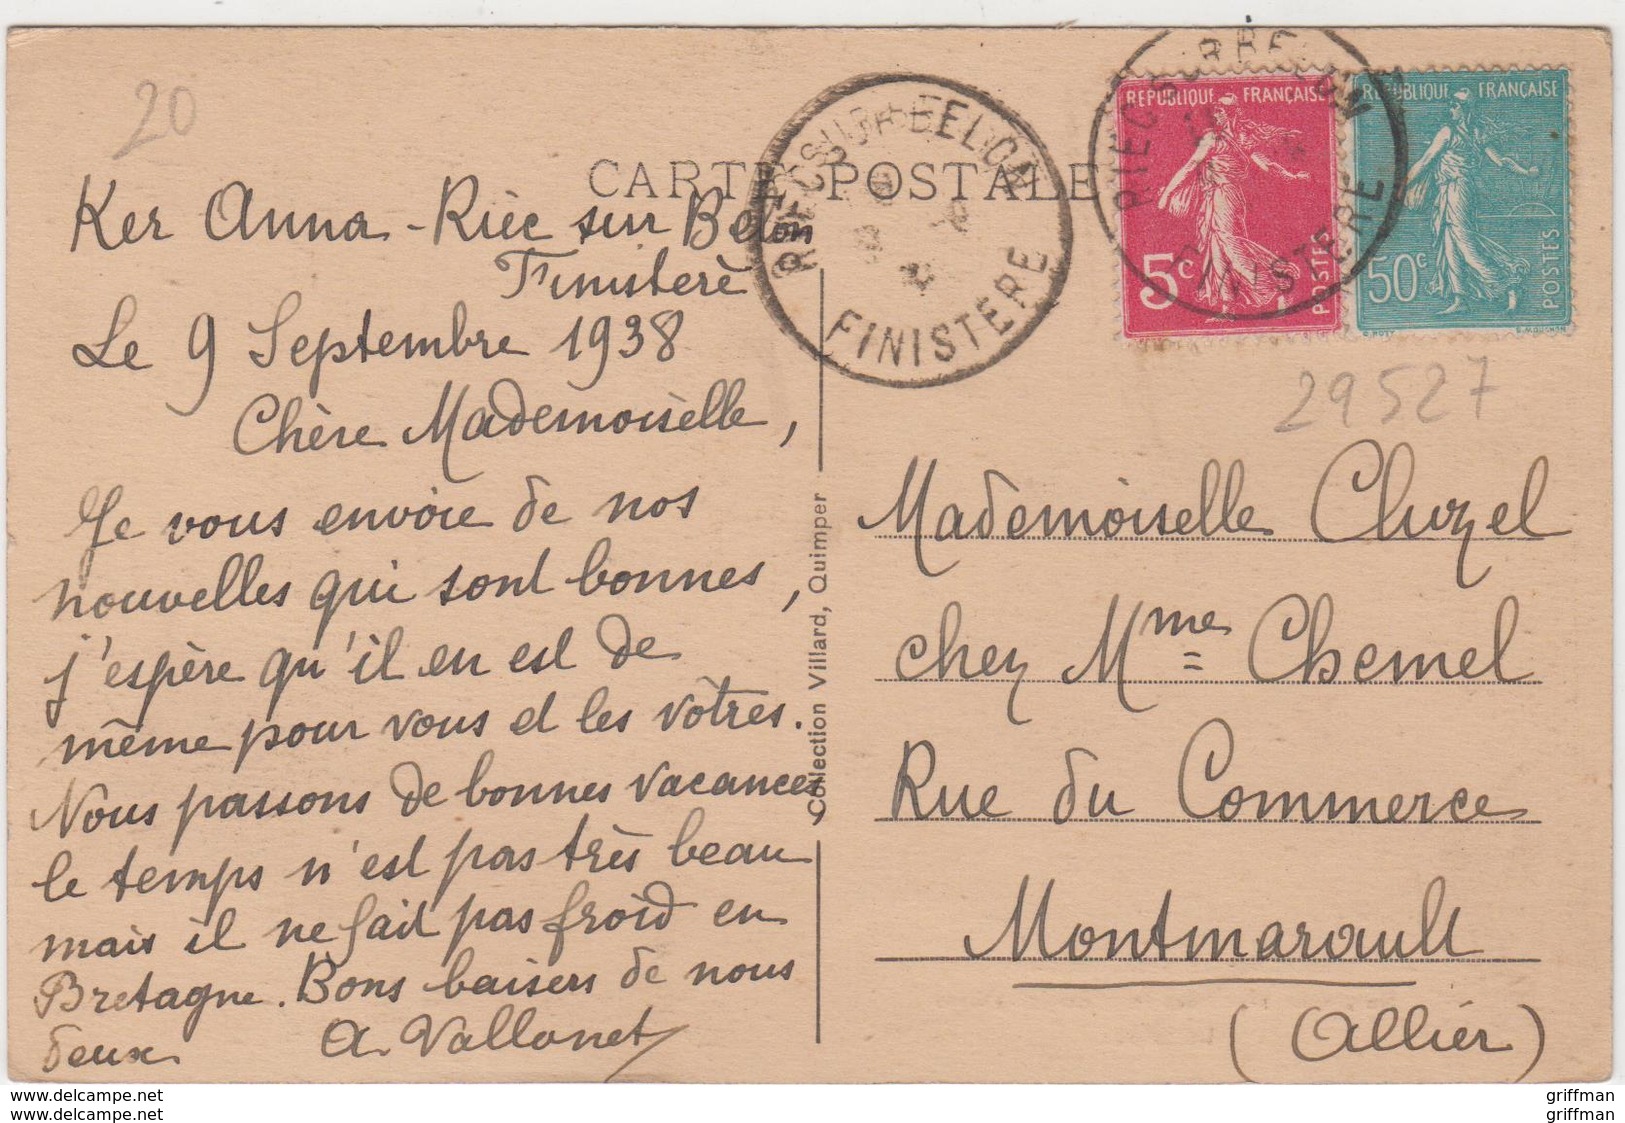 20
CARTE POSTALE
Ker Anna - Riec sur Belon
Finistère
Le 9 Septembre 1938
Chère Mademoiselle,
Je vous envoie de nos
nouvelles qui sont bonnes,
j'espère qu'il en est de
même pour vous et les vôtres.
Nous passons de bonnes vacances,
le temps n'est pas très beau
mais il ne fait pas froid en
Bretagne. Bons baisers de nous
deux
A. Vallonet
Collection Villard, Quimper
RIEC-SUR-BELON
FINISTERE
RIEC-SUR-BELON
FINISTERE
REPUBLIQUE FRANÇAISE
5c
POSTES
REPUBLIQUE FRANÇAISE
50c
POSTES
29527
Mademoiselle Cluzel
chez Mme Chemel
Rue du Commerce
Montmarault
(Allier)
griffman
griffman
griffman
griffman